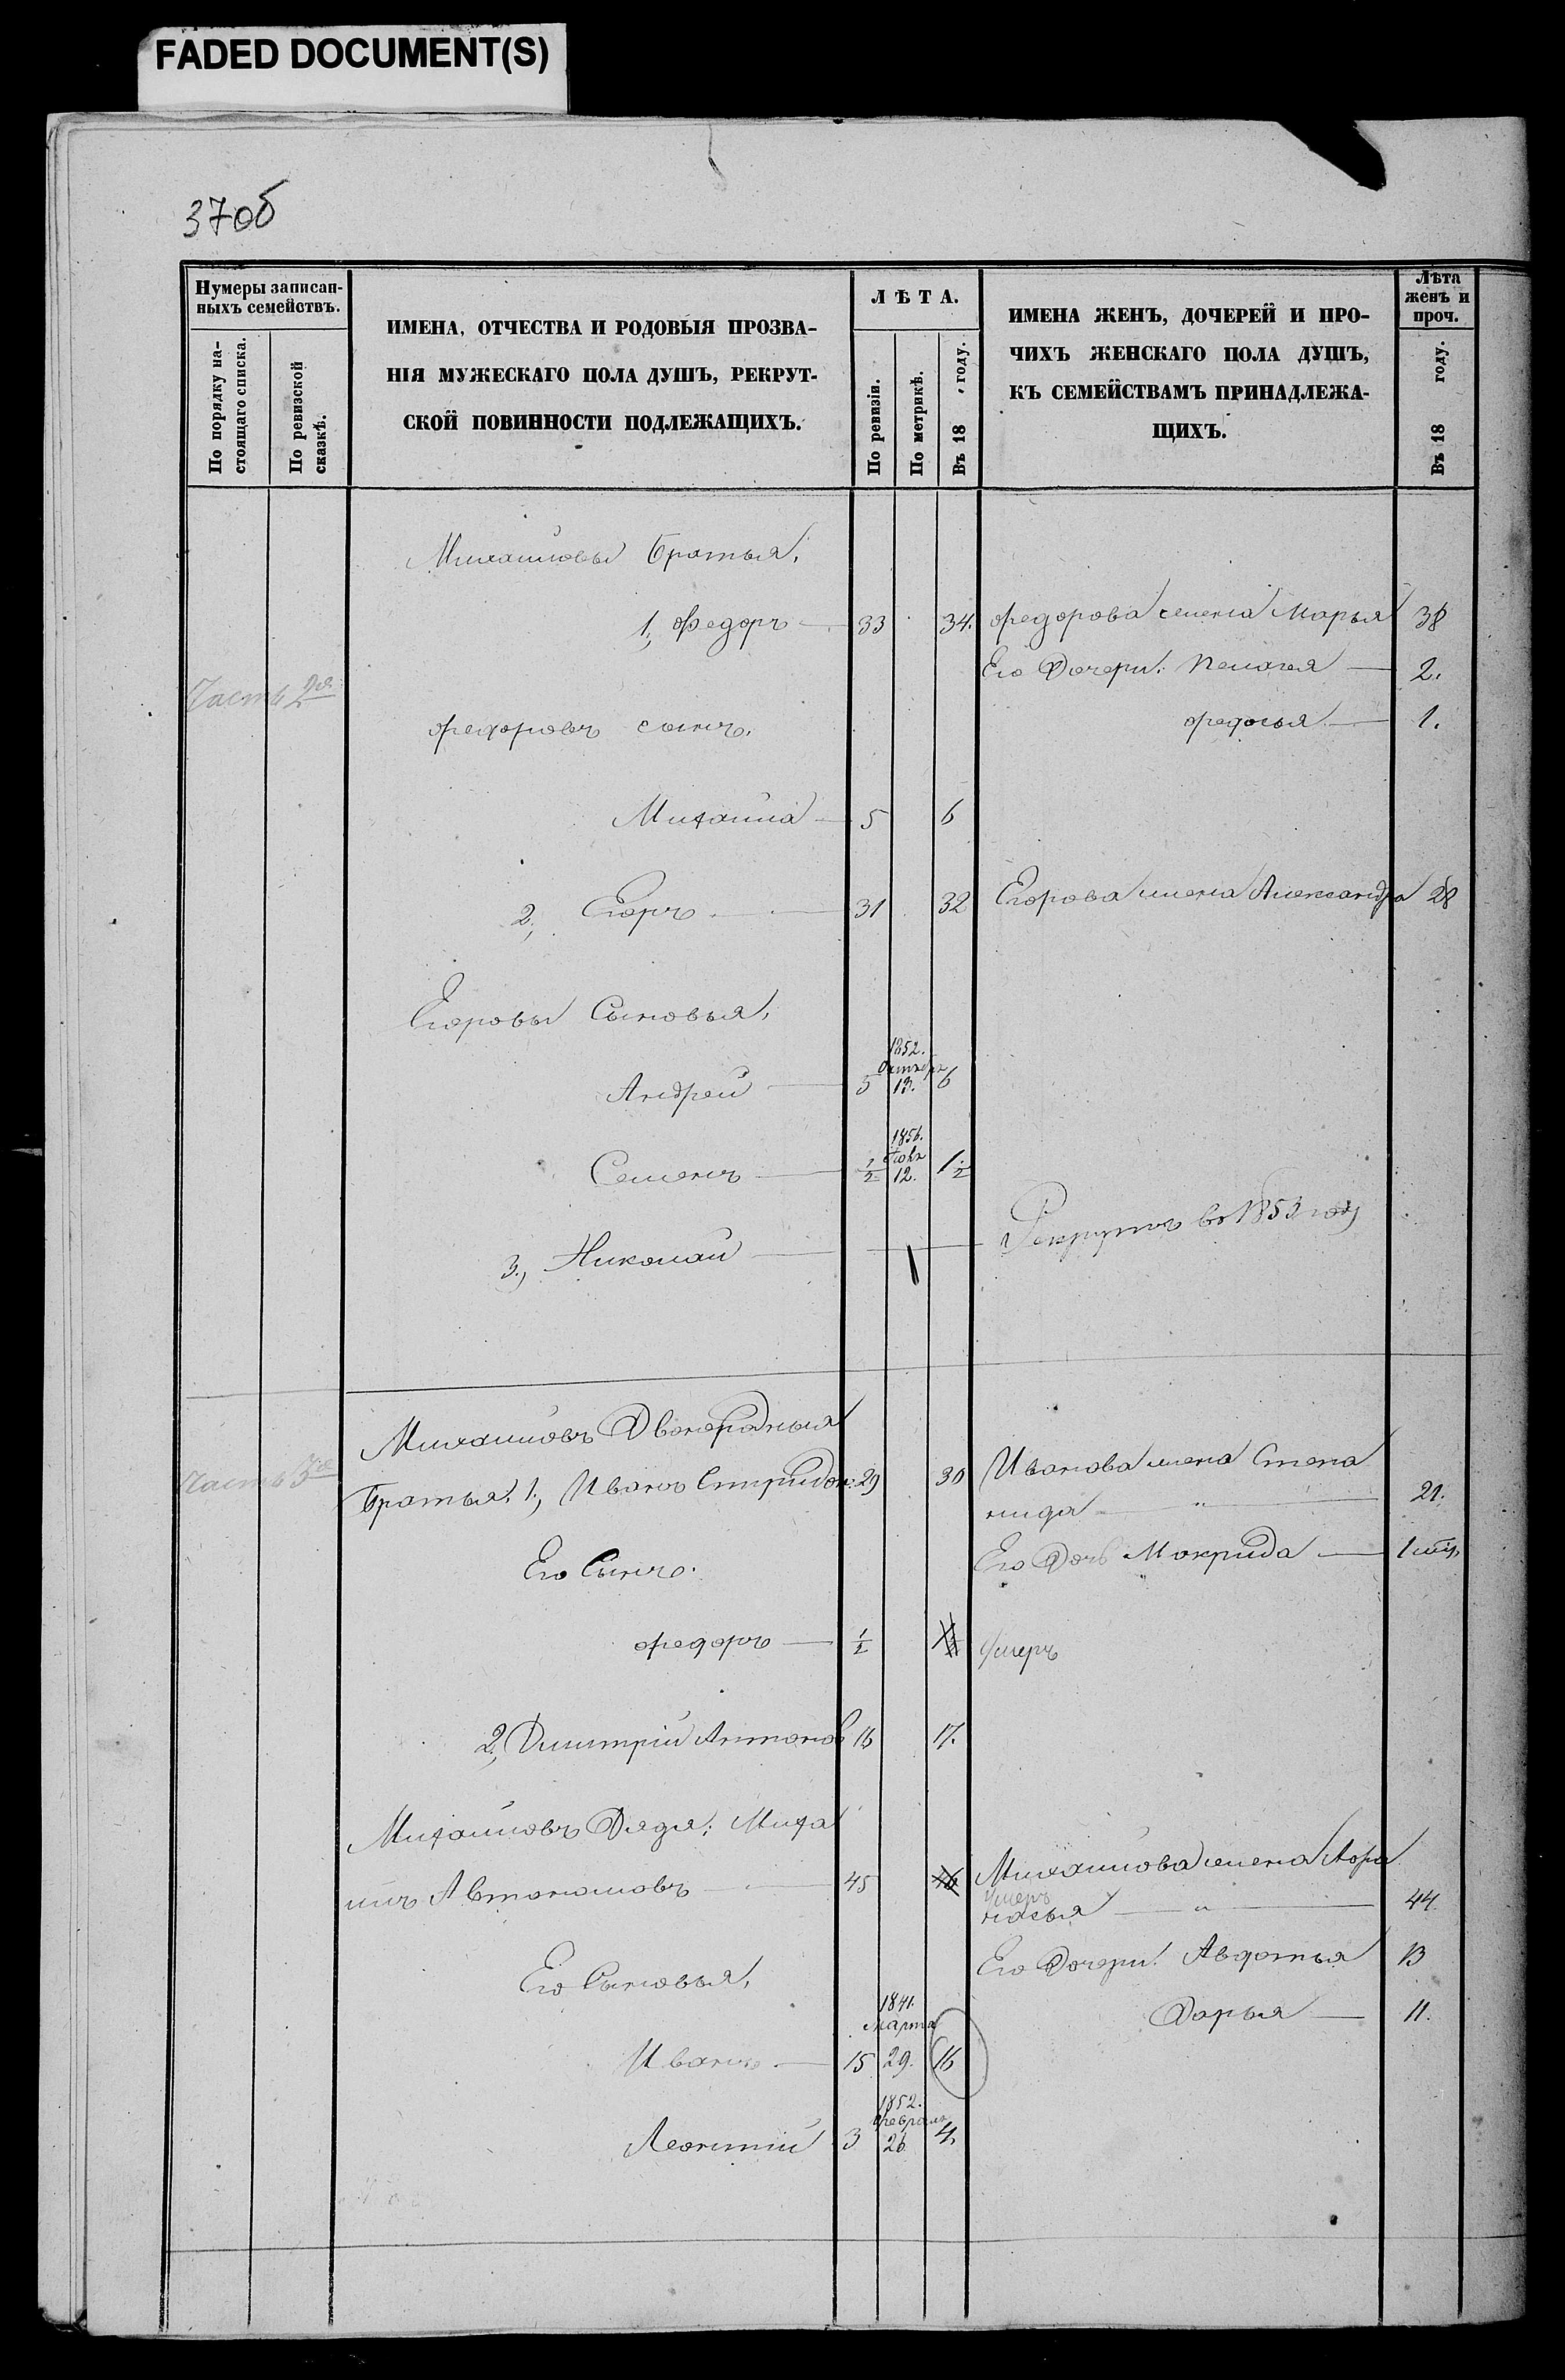 FADED DOCUMENT(S)
37об
Нумеры записан-
ныхъ семействъ.
По порядку на-
стоящаго списка.
По ревизской
сказкѣ.
ИМЕНА, ОТЧЕСТВА И РОДОВЫЯ ПРОЗВА-
НІЯ МУЖЕСКАГО ПОЛА ДУШЪ, РЕКРУТ-
СКОЙ ПОВИННОСТИ ПОДЛЕЖАЩИХЪ.
ЛѢТА.
По ревизіи.
По метрикѣ.
Въ 18 году.
ИМЕНА ЖЕНЪ, ДОЧЕРЕЙ И ПРО-
ЧИХЪ ЖЕНСКАГО ПОЛА ДУШЪ,
КЪ СЕМЕЙСТВАМЪ ПРИНАДЛЕЖА-
ЩИХЪ.
Лѣта
женъ и
проч.
Въ 18 году.
Михайловы братья,
1, Федоръ 33 34. Федорова жена Марья 38
Его Дочери: Пелагея 2.
Часть 2я
Федоровъ сынъ. Федосья 1.
Михайла 5 6
2, Егоръ 31 32 Егорова жена Александра 28
Егоровы Сыновья,
1852.
Октября
Андрей 5 13. 6
1856.
Семенъ 1/2 12. 1 1/2
3, Николай Рекрутъ въ 1853 году
Михайловъ Двоюродныя
Часть 3я Братья. 1, Иванъ Спиридон. 29 30 Иванова жена Степа
нида 21.
Его Сынъ. Его Дочь Мокрида
Федоръ 1/2 умеръ
2, Дмитрій Антонов 16 17.
Михайловъ Дядя: Миха
илъ Автономовъ 45 46 Михайлова жена Афа
умеръ
насья 44.
Его Сыновья, Его Дочери: Авдотья 13
1841.
Марта Дарья 11.
Иванъ 15 29. 16
1852.
Февраля
Леонтій 3 26 4